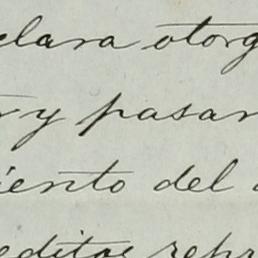 clara otorg
r y pasar
iento del
editos repr